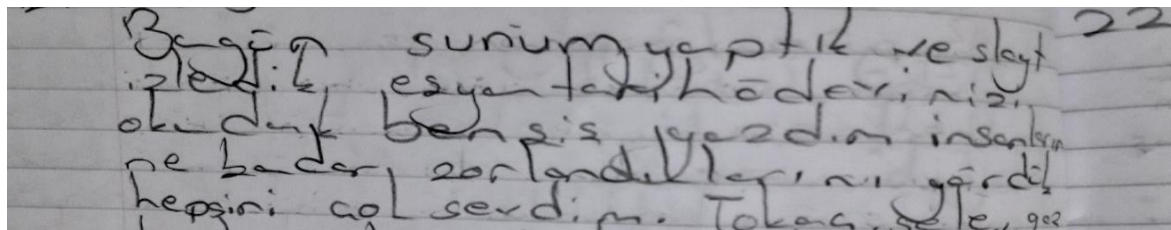 22
Bugün sunum yaptık ve slayt
izledik, eşyan tarih ödevinizi
okuduk ben sis yazdım insanların
ne kadar zorlandıklarını gördük
hepsini çol sevdim. Tokaç, sele, göz